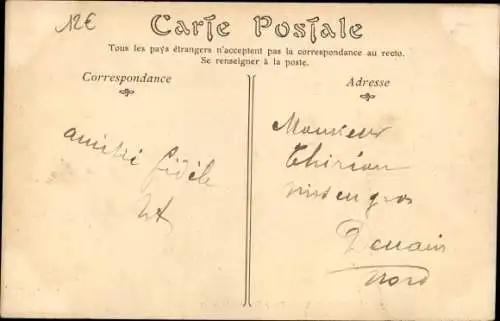 12€
Carte Postale
Tous les pays étrangers n'acceptent pas la correspondance au recto.
Se renseigner à la poste.
Correspondance
Adresse
amitié fidèle
Monsieur
Thirion
vins en gros
Denain
Nord